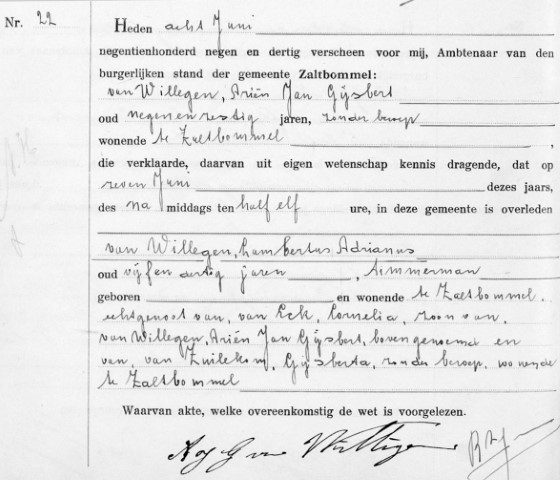 Nr. 22
Heden acht Juni
negentienhonderd negen en dertig verscheen voor mij, Ambtenaar van den
burgerlijken stand der gemeente Zaltbommel:
van Willegen, Ariën Jan Gijsbert
oud negenenzestig jaren, zonder beroep
wonende te Zaltbommel,
die verklaarde, daarvan uit eigen wetenschap kennis dragende, dat op
zeven Juni dezes jaars,
des na middags ten half elf ure, in deze gemeente is overleden
van Willegen, Lambertus Adrianus
oud vijfendertig jaren, timmerman
geboren en wonende te Zaltbommel,
echtgenoot van, van Eck, Cornelia, zoon van,
van Willegen, Ariën Jan Gijsbert, bovengenoemd en
van, van Zuilekom, Gijsberta, zonder beroep, wonende
te Zaltbommel
Waarvan akte, welke overeenkomstig de wet is voorgelezen.